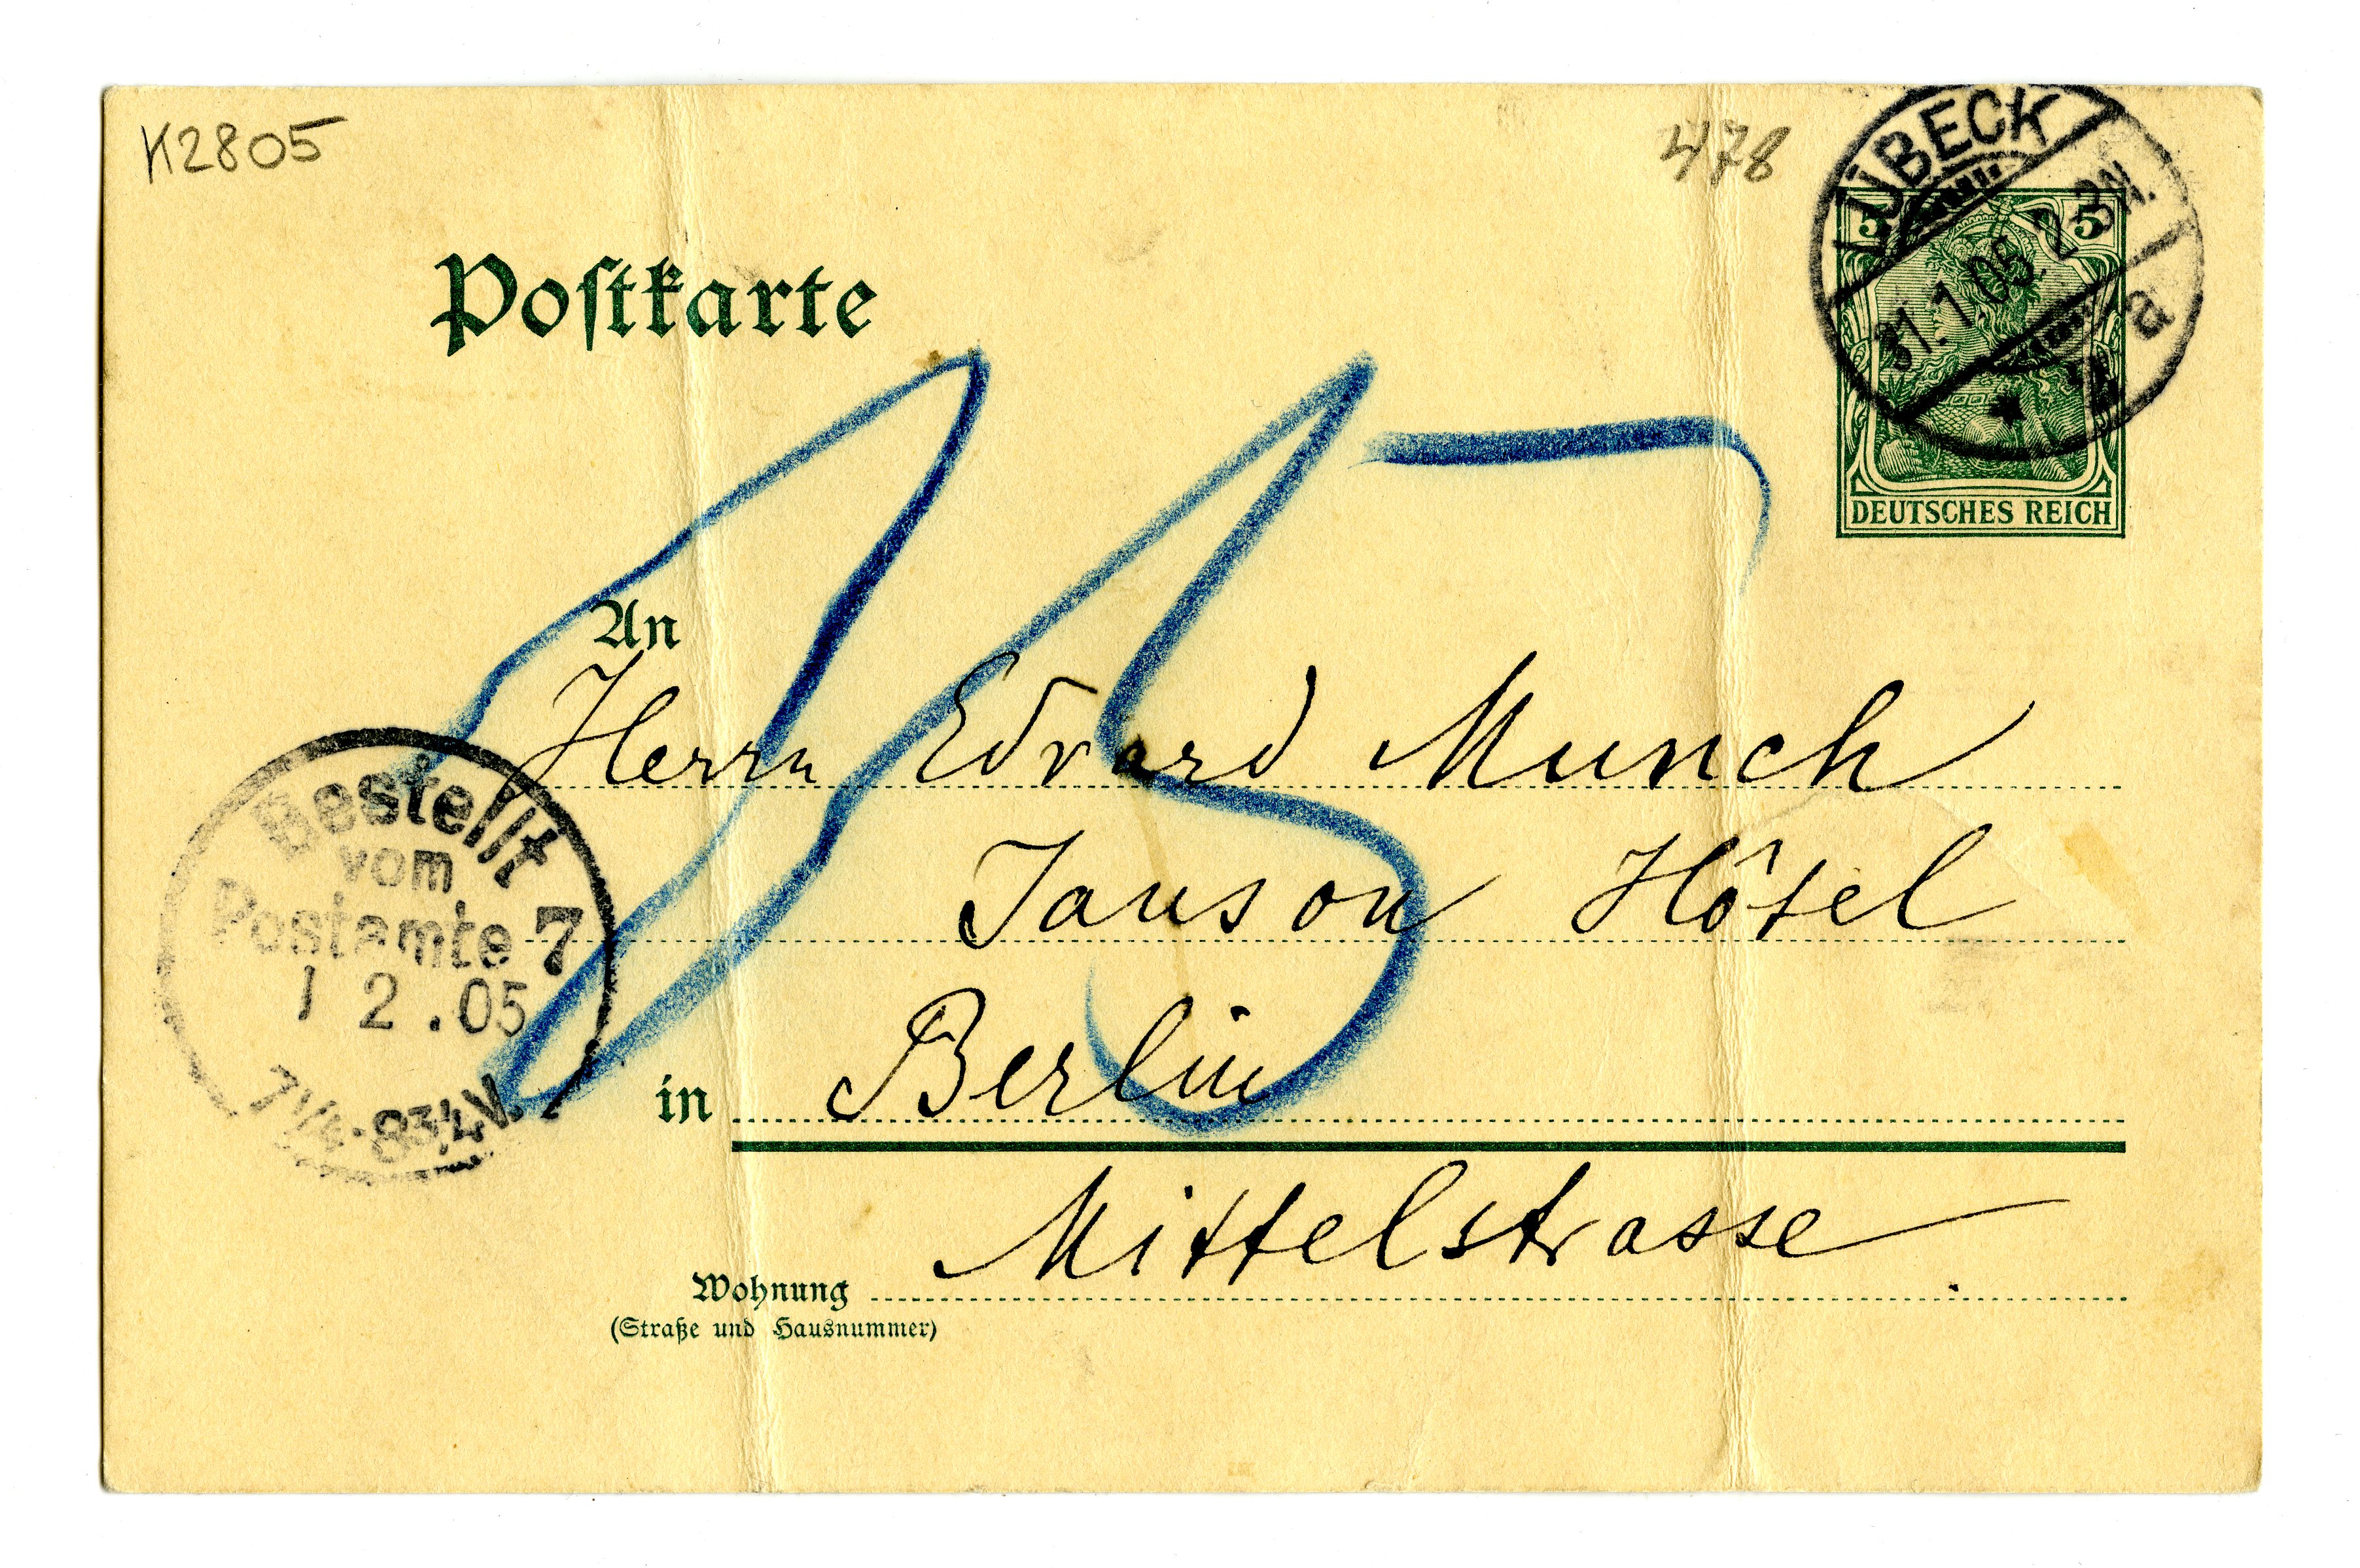 K2805
478
LÜBECK
31.1.05. 2-3N.
a
5 5
DEUTSCHES REICH
Postkarte
15
An
Herrn Edvard Munch
Janson Hôtel
in Berlin
Mittelstrasse
Wohnung
(Straße und Hausnummer)
Bestellt
vom
Postamte 7
1 2.05
7 1/4-8 3/4V.